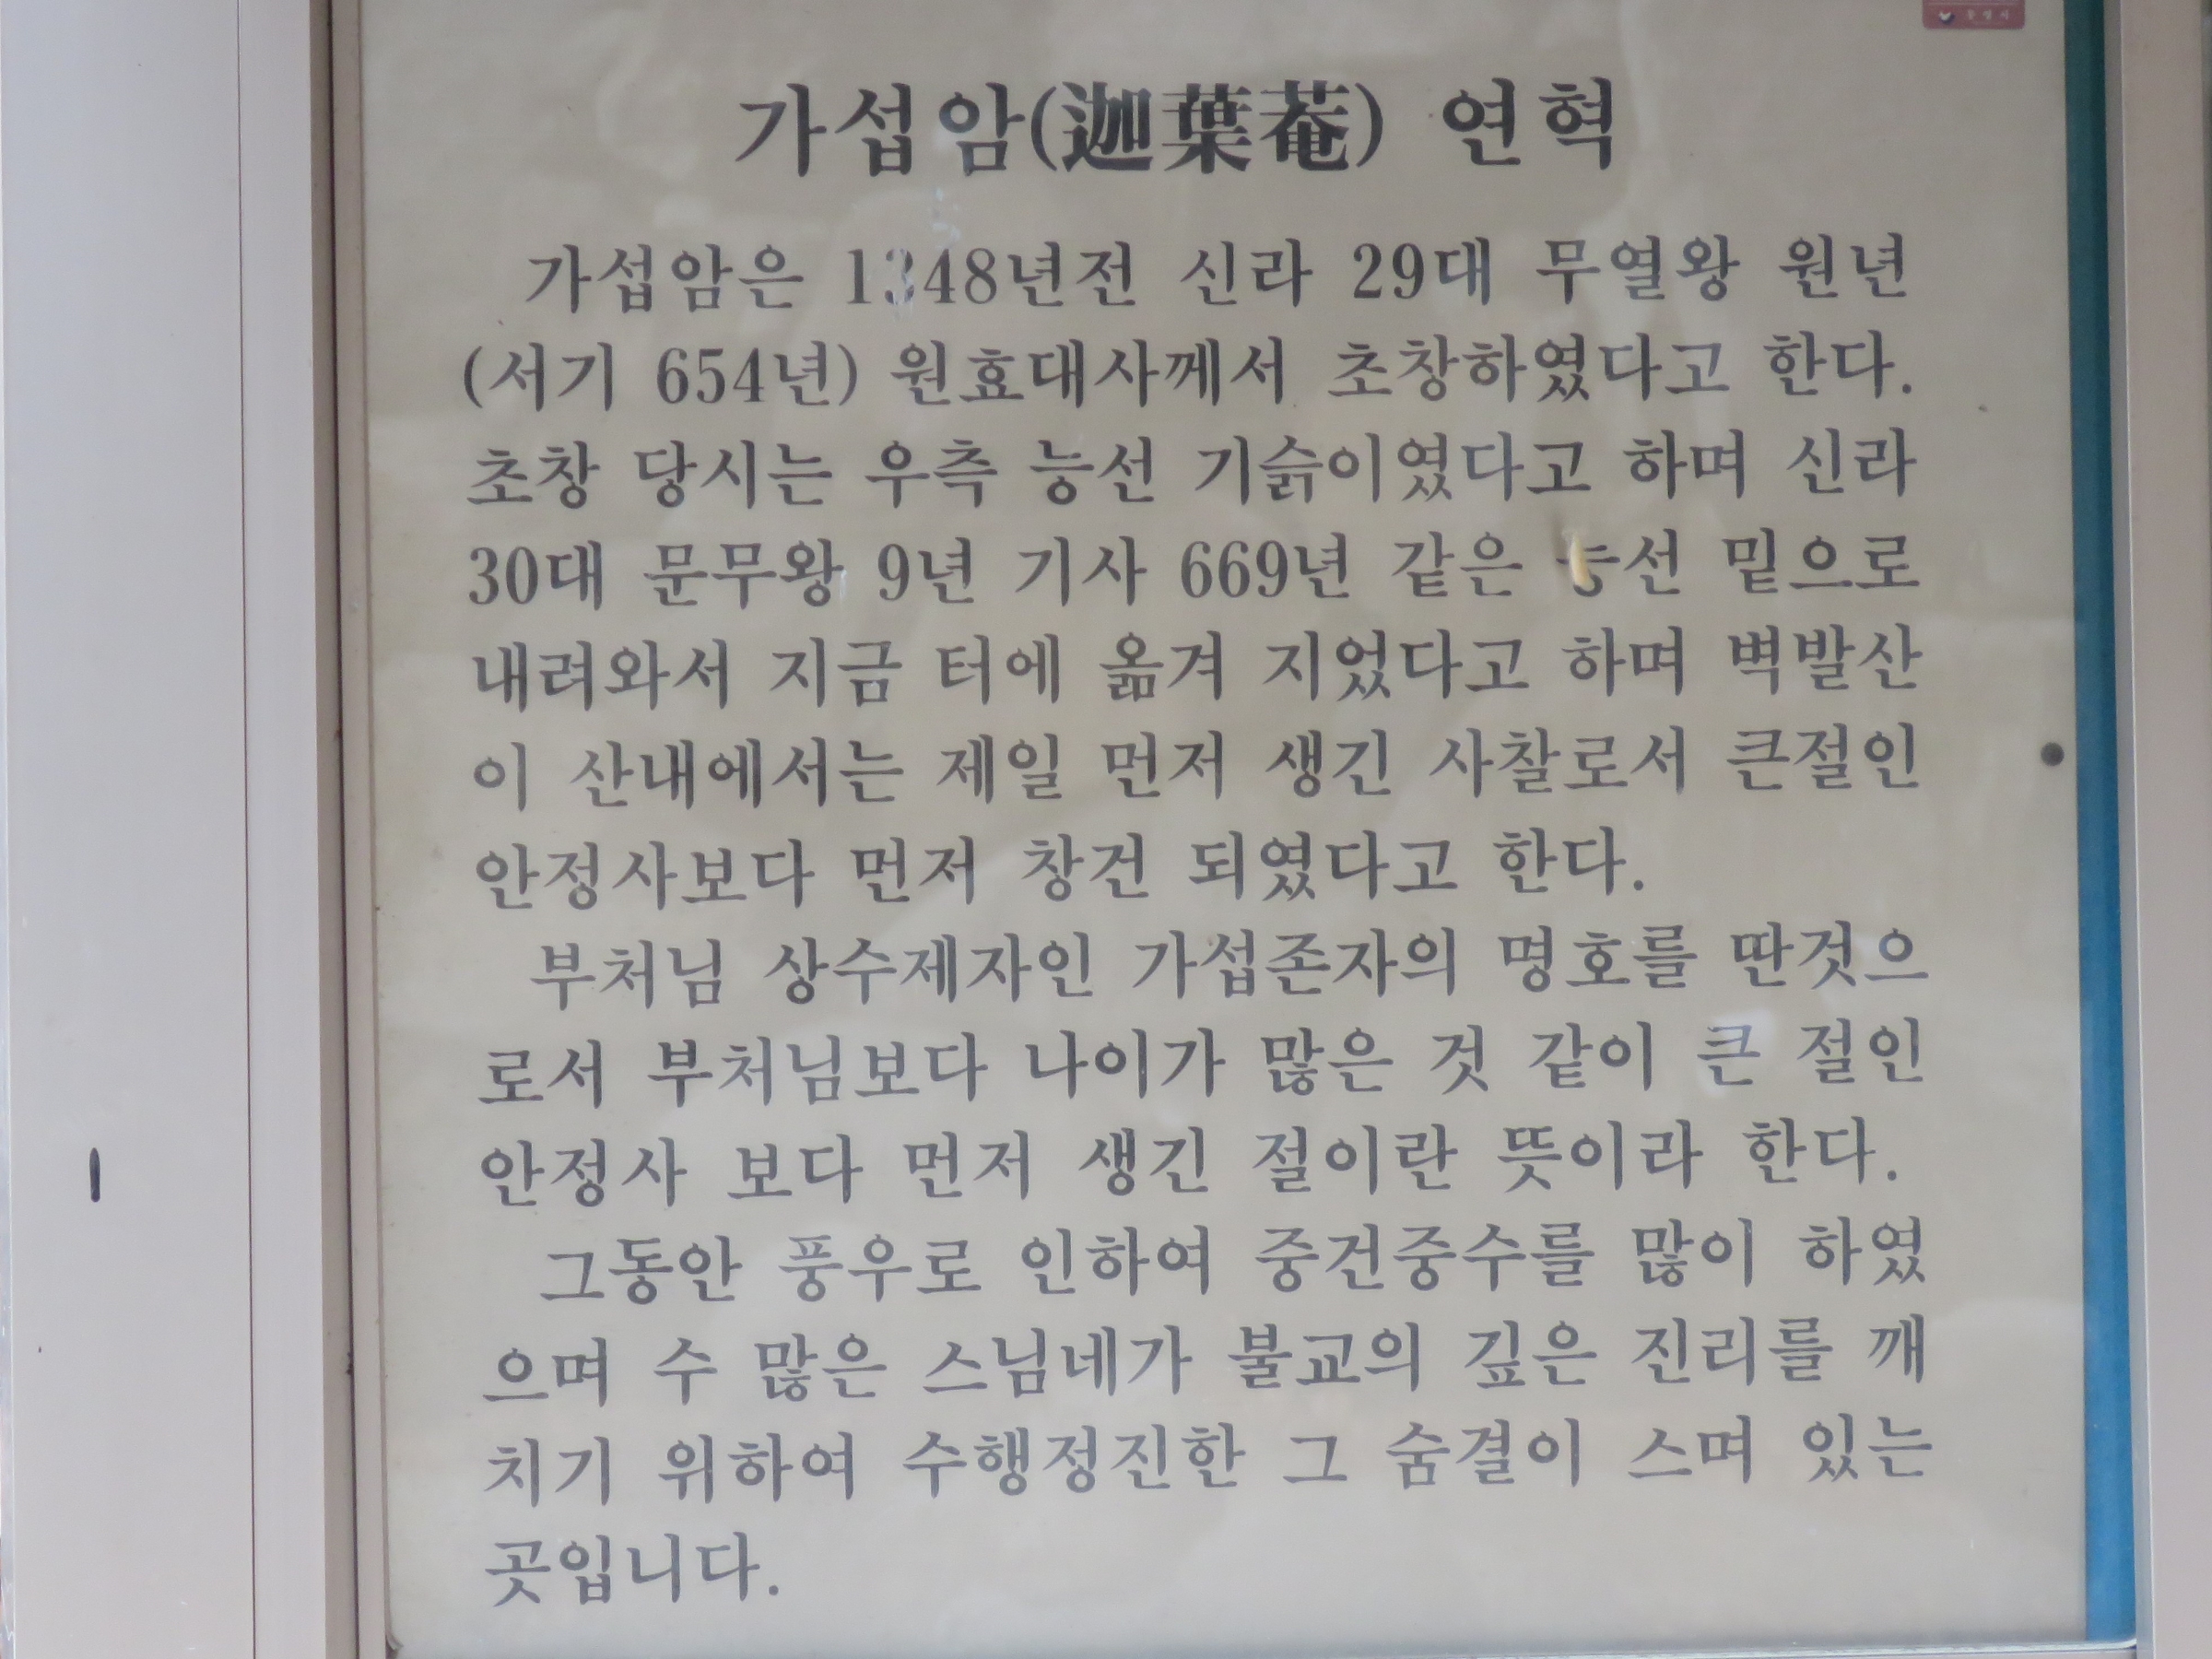 통영시
가섭암(迦葉菴) 연혁
가섭암은 1348년전 신라 29대 무열왕 원년
(서기 654년) 원효대사께서 초창하였다고 한다.
초창 당시는 우측 능선 기슭이였다고 하며 신라
30대 문무왕 9년 기사 669년 같은 능선 밑으로
내려와서 지금 터에 옮겨 지었다고 하며 벽발산
이 산내에서는 제일 먼저 생긴 사찰로서 큰절인
안정사보다 먼저 창건 되였다고 한다.
부처님 상수제자인 가섭존자의 명호를 딴것으
로서 부처님보다 나이가 많은 것 같이 큰 절인
안정사 보다 먼저 생긴 절이란 뜻이라 한다.
그동안 풍우로 인하여 중건중수를 많이 하였
으며 수 많은 스님네가 불교의 깊은 진리를 깨
치기 위하여 수행정진한 그 숨결이 스며 있는
곳입니다.